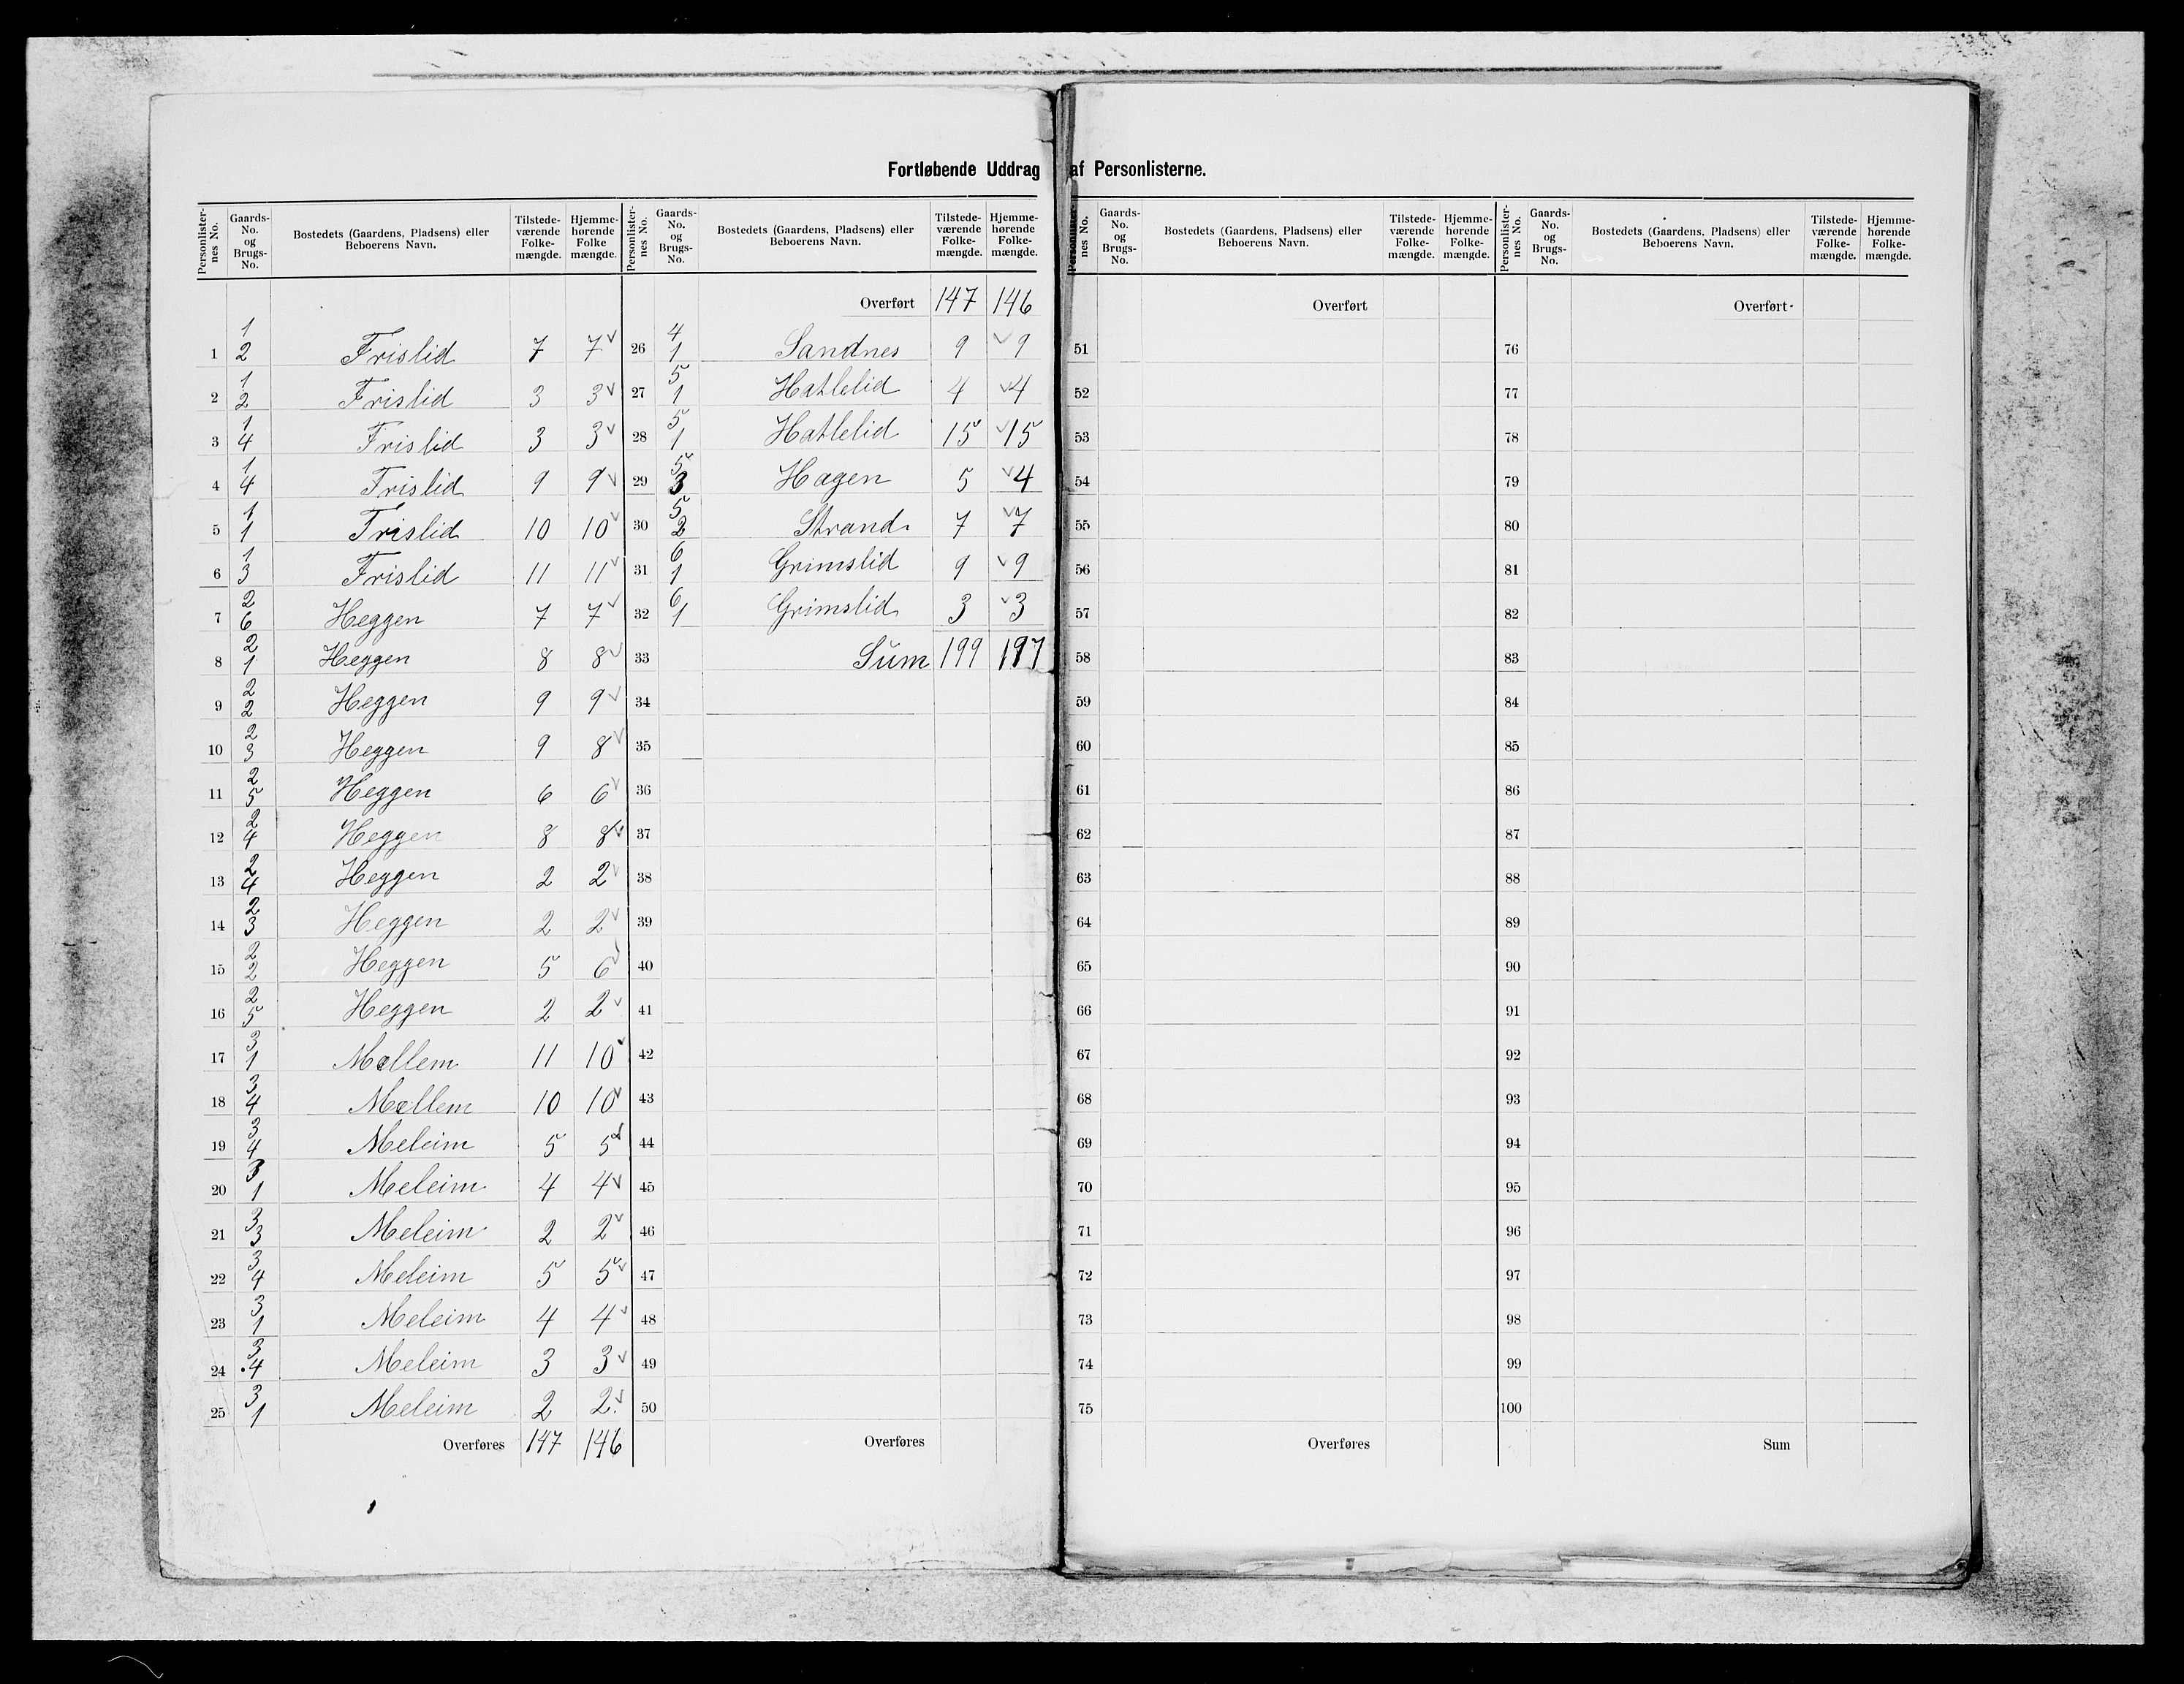 Fortløbende Uddrag af Personlisterne.
Personlister-nes No. | Gaards-No. og Brugs-No. | Bostedets (Gaardens, Pladsens) eller Beboerens Navn. | Tilstede-værende Folke-mængde. | Hjemme-hørende Folke mængde.
1 | 1 2 | Frislid | 7 | 7 v
2 | 1 2 | Frislid | 3 | 3 v
3 | 1 4 | Frislid | 3 | 3 v
4 | 1 4 | Frislid | 9 | 9 v
5 | 1 1 | Frislid | 10 | 10 v
6 | 1 3 | Frislid | 11 | 11 v
7 | 2 6 | Heggen | 7 | 7 v
8 | 2 1 | Heggen | 8 | 8 v
9 | 2 2 | Heggen | 9 | 9 v
10 | 2 3 | Heggen | 9 | 8 v
11 | 2 5 | Heggen | 6 | 6 v
12 | 2 4 | Heggen | 8 | 8 v
13 | 2 4 | Heggen | 2 | 2 v
14 | 2 3 | Heggen | 2 | 2 v
15 | 2 2 | Heggen | 5 | 6 v
16 | 2 5 | Heggen | 2 | 2 v
17 | 3 1 | Mellem | 11 | 10 v
18 | 3 4 | Mellem | 10 | 10 v
19 | 3 4 | Meleim | 5 | 5 v
20 | 3 1 | Meleim | 4 | 4 v
21 | 3 3 | Meleim | 2 | 2 v
22 | 3 4 | Meleim | 5 | 5 v
23 | 3 1 | Meleim | 4 | 4 v
24 | 3 4 | Meleim | 3 | 3 v
25 | 3 1 | Meleim | 2 | 2 v
Overføres | 147 | 146
Personlister-nes No. | Gaards-No. og Brugs-No. | Bostedets (Gaardens, Pladsens) eller Beboerens Navn. | Tilstede-værende Folke-mængde. | Hjemme-hørende Folke-mængde.
Overført | 147 | 146
26 | 4 1 | Sandnes | 9 | v 9
27 | 5 1 | Hatlelid | 4 | v 4
28 | 5 1 | Hatlelid | 15 | v 15
29 | 5 3 | Hagen | 5 | v 4
30 | 5 2 | Strand | 7 | v 7
31 | 6 1 | Grimslid | 9 | v 9
32 | 6 1 | Grimslid | 3 | v 3
33 | Sum | 199 | 197
34
35
36
37
38
39
40
41
42
43
44
45
46
47
48
49
50
Overføres
Personlister-nes No. | Gaards-No. og Brugs-No. | Bostedets (Gaardens, Pladsens) eller Beboerens Navn. | Tilstede-værende Folke-mængde. | Hjemme-hørende Folke-mængde.
Overført
51
52
53
54
55
56
57
58
59
60
61
62
63
64
65
66
67
68
69
70
71
72
73
74
75
Overføres
Personlister-nes No. | Gaards-No. og Brugs-No. | Bostedets (Gaardens, Pladsens) eller Beboerens Navn. | Tilstede-værende Folke-mængde. | Hjemme-hørende Folke-mængde.
Overført
76
77
78
79
80
81
82
83
84
85
86
87
88
89
90
91
92
93
94
95
96
97
98
99
100
Sum